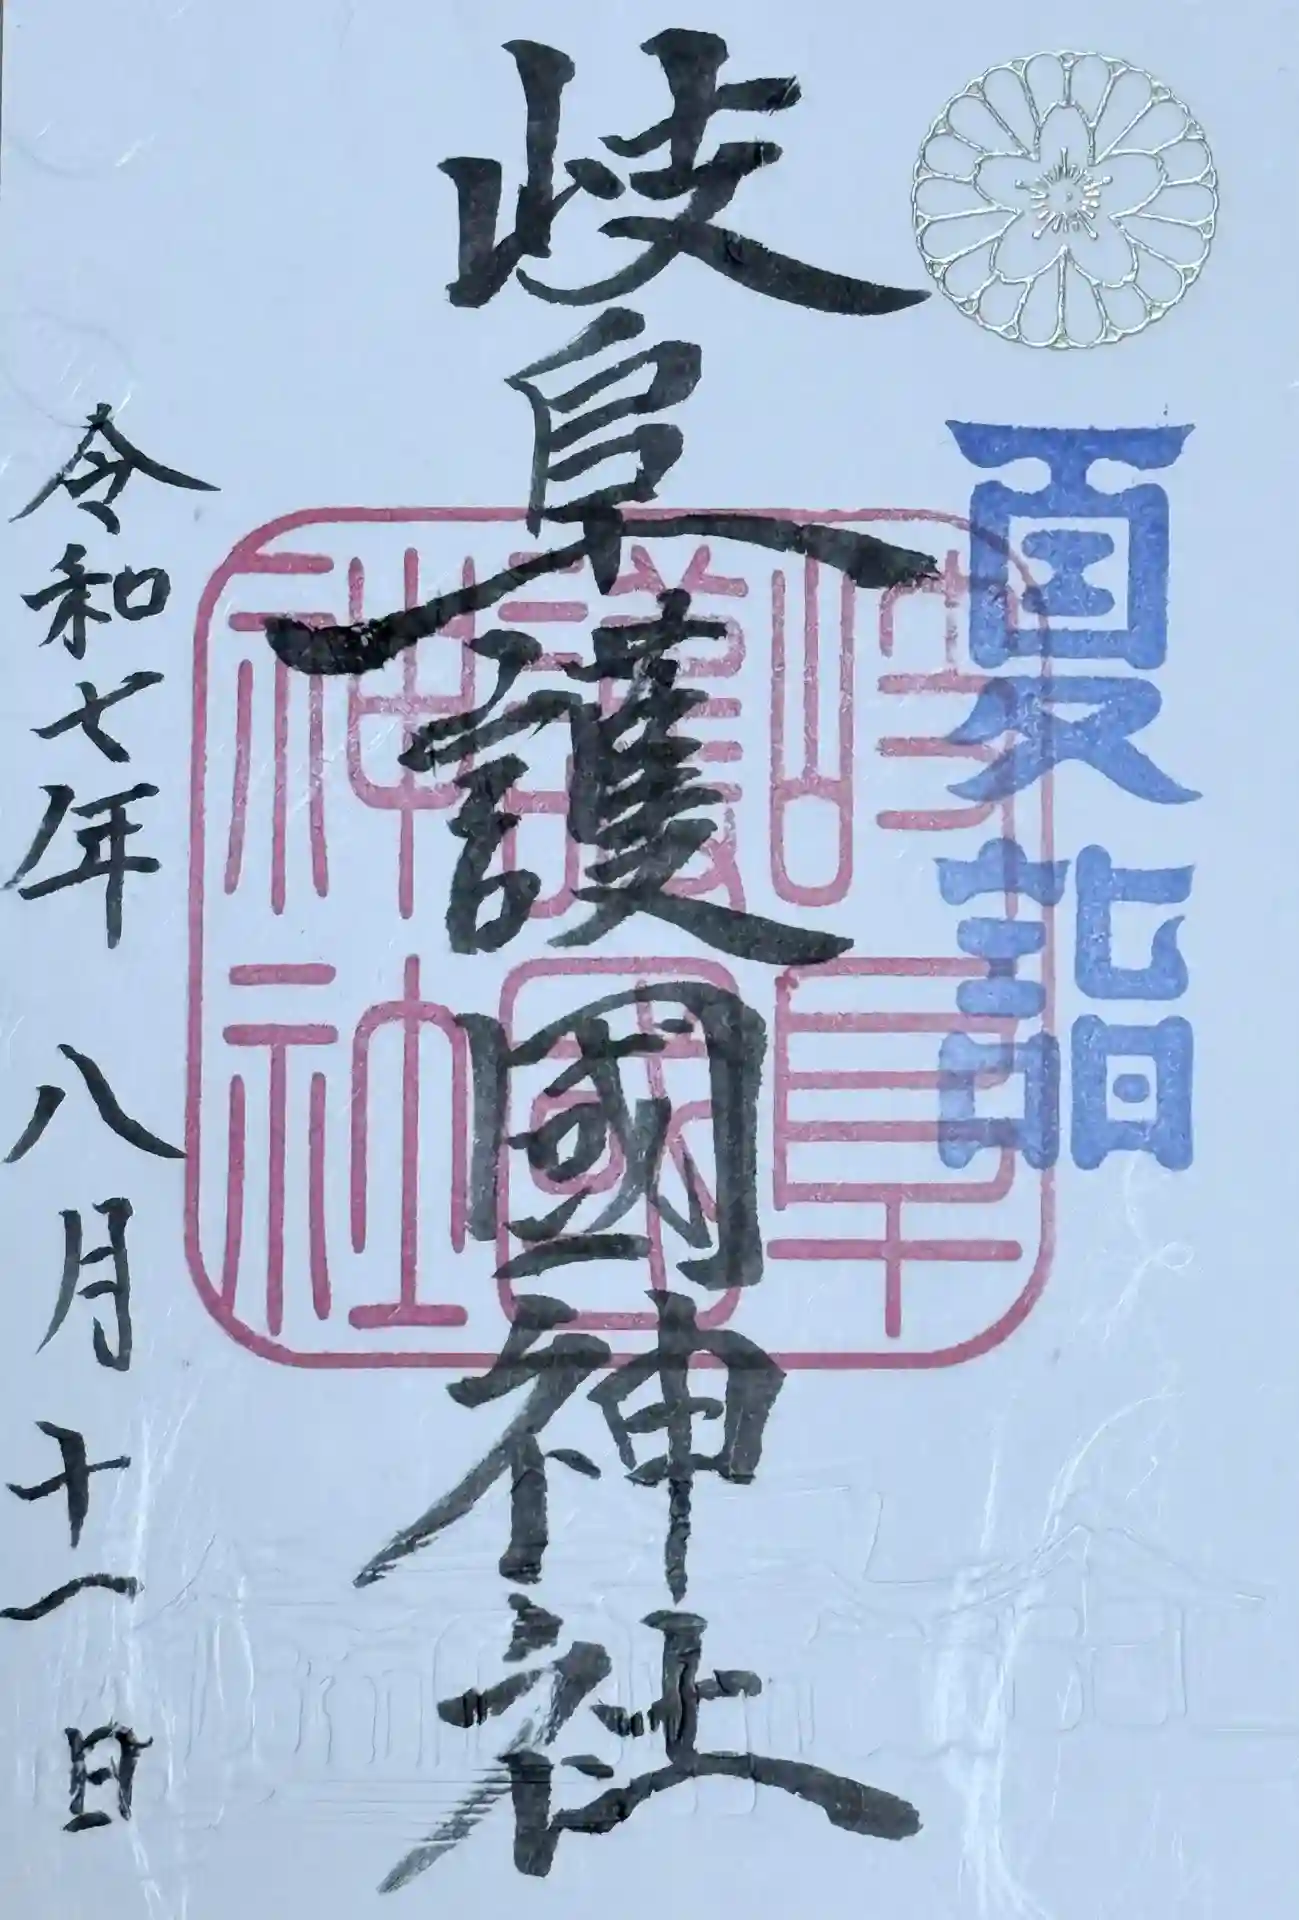 夏詣
岐阜護國神社
岐阜護國神社
令和七年八月十一日